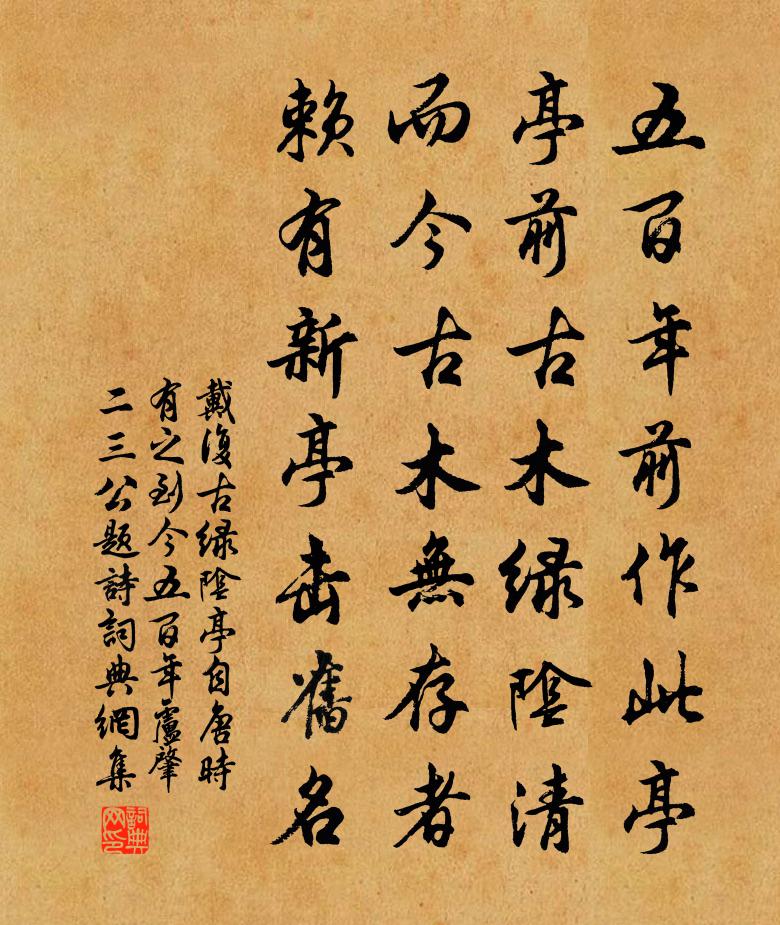 五百年前作此亭
亭前古木緑陰清
而今古木無存者
賴有新亭舊名
戴復古緑陰亭自唐時
有之到今五百年盧肇
二三公題詩詞典網集
詞典网印